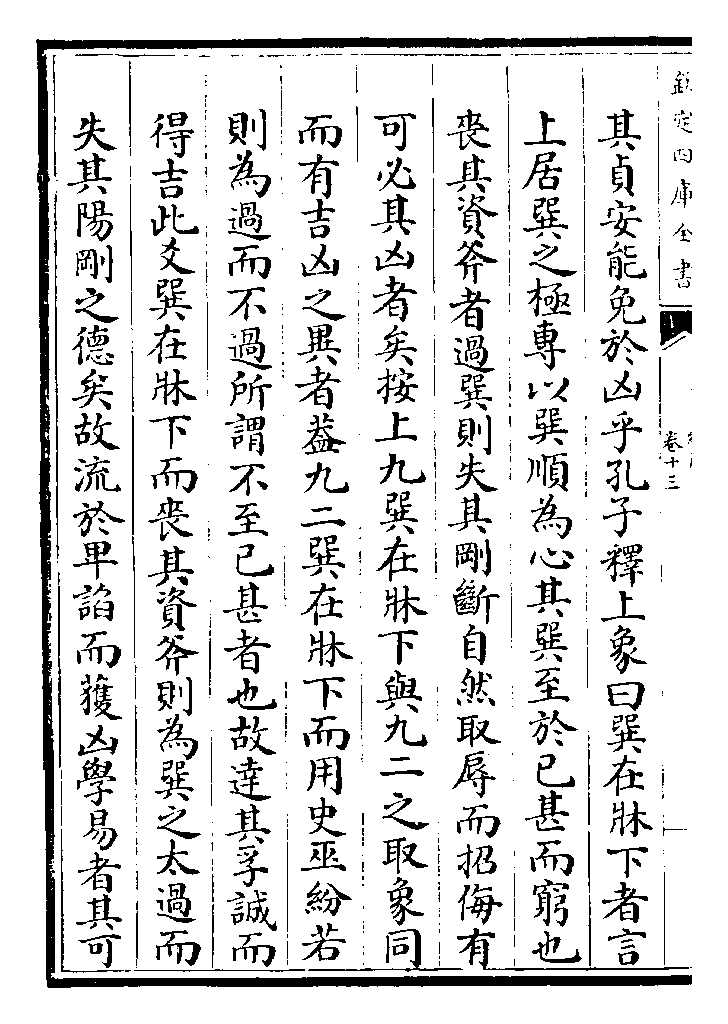 欽定四庫全書
卷十三
其貞安能免於凶乎孔子釋上象曰巽在牀下者言
上居巽之極專以巽順為心其巽至於已甚而窮也
喪其資斧者過巽則失其剛斷自然取辱而招侮有
可必其凶者矣按上九巽在牀下與九二之取象同
而有吉凶之異者葢九二巽在牀下而用史巫紛若
則為過而不過所謂不至已甚者也故達其孚誠而
得吉此爻巽在牀下而喪其資斧則為巽之太過而
失其陽剛之德矣故流於卑諂而獲凶學易者其可